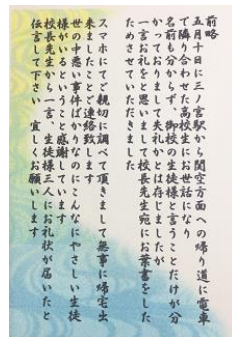 前略
五月十日に三ノ宮駅から関空方面への帰り道に電車
で隣り合わせた高校生にお世話になり
名前も分からず、御校の生徒様と言うことだけが分
かっておりまして失礼かとは存じましたが
一言お礼をと思いまして校長先生宛にお葉書をした
ためさせていただきました
スマホにてご親切に調べて頂きまして無事に帰宅出
来ましたことご連絡致します
世の中悪い事件ばかりなのにこんなにやさしい生徒
様がいるということ感謝しています
校長先生から一言、生徒様三人にお礼状が届いたと
伝言して下さい　宜しくお願いします